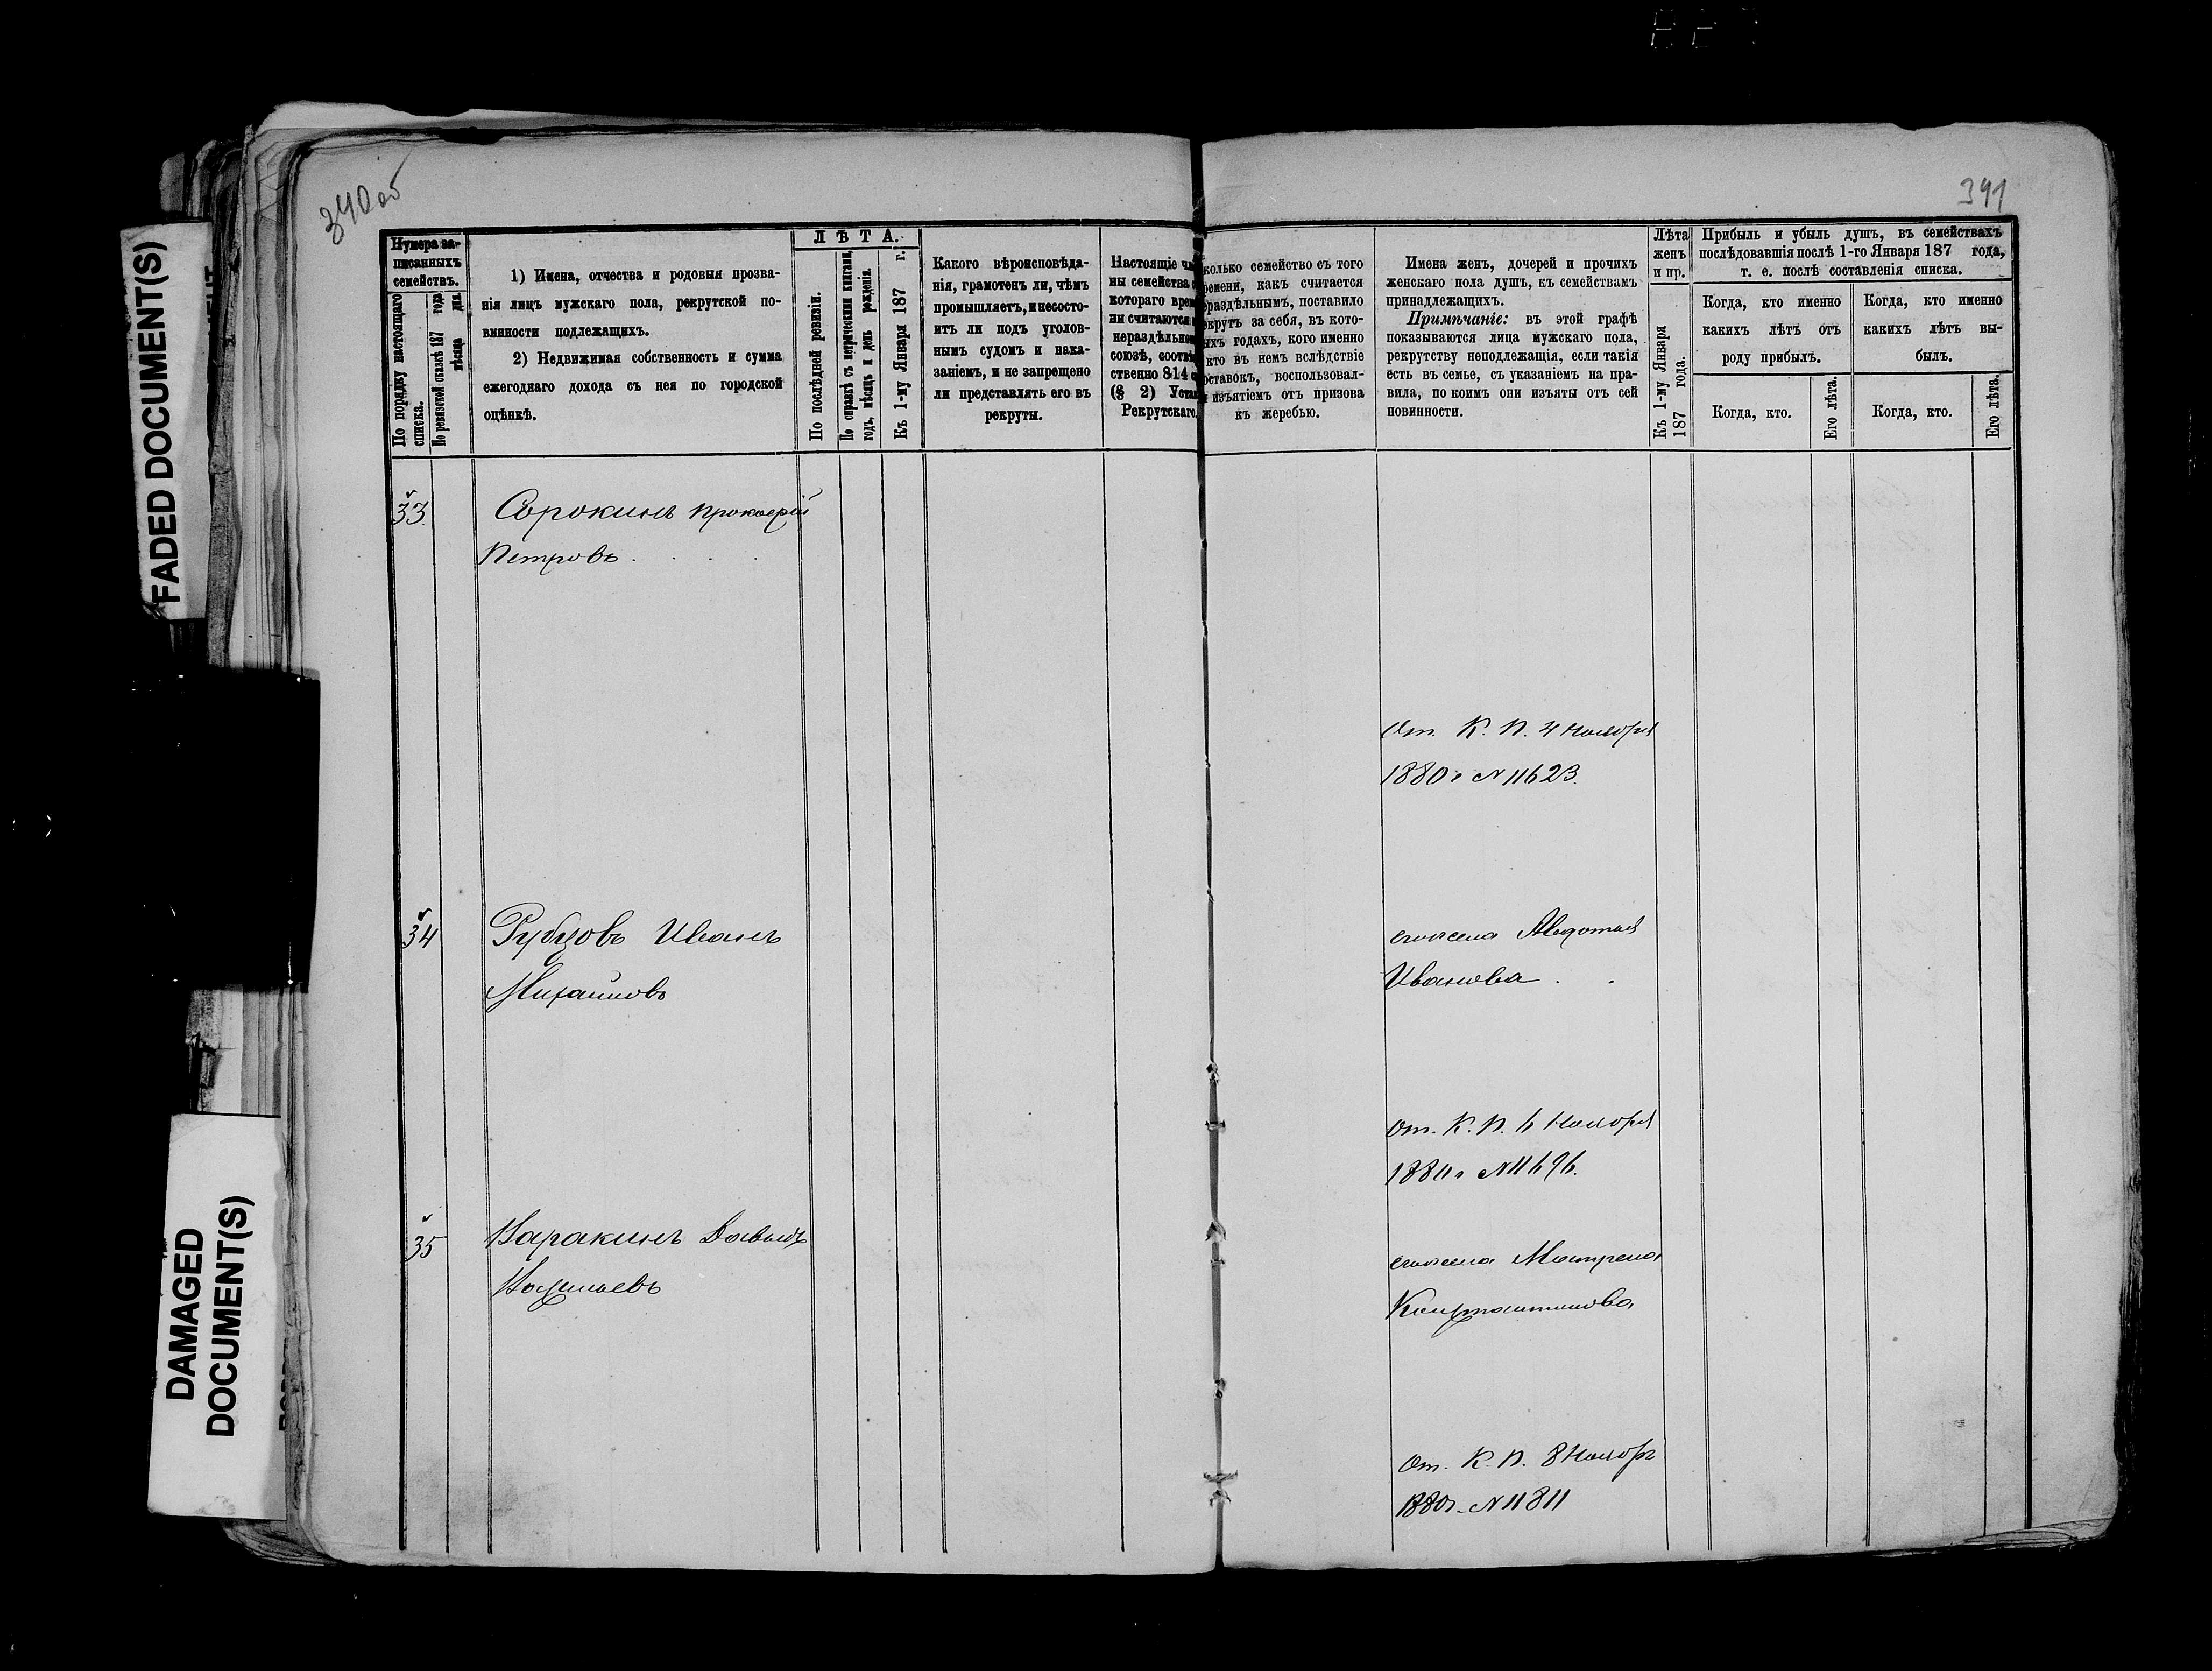 340 об
341
FADED DOCUMENT(S)
DAMAGED
DOCUMENT(S)
Нумера за-
писанныхъ
семействъ.
По порядку настоящаго
списка.
По ревизской сказкѣ 187 года
мѣсяца дня.
1) Имена, отчества и родовыя прозва-
нія лицъ мужскаго пола, рекрутской по-
винности подлежащихъ.
2) Недвижимая собственность и сумма
ежегоднаго дохода съ нея по городской
оцѣнкѣ.
ЛѢТА.
По послѣдней ревизіи.
По справкѣ съ метрическими книгами,
годъ, мѣсяцъ и день рожденія.
Къ 1-му Января 187 г.
Какого вѣроисповѣда-
нія, грамотенъ ли, чѣмъ
промышляетъ, и несосто-
итъ ли подъ уголов-
нымъ судомъ и нака-
заніемъ, и не запрещено
ли представлять его въ
рекруты.
Настоящіе чл
ны семейства с
котораго врем
ни считаются
нераздѣльном
союзѣ, соотвѣ
ственно 814 с
(§ 2) Устав
Рекрутскаго.
колько семейство съ того
ремени, какъ считается
ераздѣльнымъ, поставило
екрутъ за себя, въ кото-
ыхъ годахъ, кого именно
кто въ немъ вслѣдствіе
оставокъ, воспользовал-
изъятіемъ отъ призова
къ жеребью.
Имена женъ, дочерей и прочихъ
женскаго пола душъ, къ семействамъ
принадлежащихъ.
Примѣчаніе: въ этой графѣ
показываются лица мужскаго пола,
рекрутству неподлежащія, если такія
есть въ семье, съ указаніемъ на пра-
вила, по коимъ они изъяты отъ сей
повинности.
Лѣта
женъ
и пр.
Къ 1-му Января
187 года.
Прибыль и убыль душъ, въ семействахъ
послѣдовавшія послѣ 1-го Января 187 года,
т. е. послѣ составленія списка.
Когда, кто именно
какихъ лѣтъ отъ
роду прибылъ.
Когда, кто именно
какихъ лѣтъ вы-
былъ.
Когда, кто.
Его лѣта.
Когда, кто.
Его лѣта.
33.
Сорокинъ Прокофій
Петровъ
От. К. П. 4 Ноября
1880 г N 11623.
34
Рубцовъ Иванъ
Михайловъ
его жена Авдотья
Иванова
От. К. П. 6 Ноября
1880 г N 11696.
35
Каракинъ Давыдъ
его жена Матрена
Константинова
От. К. П. 8 Ноябр
1880 г. N 11811